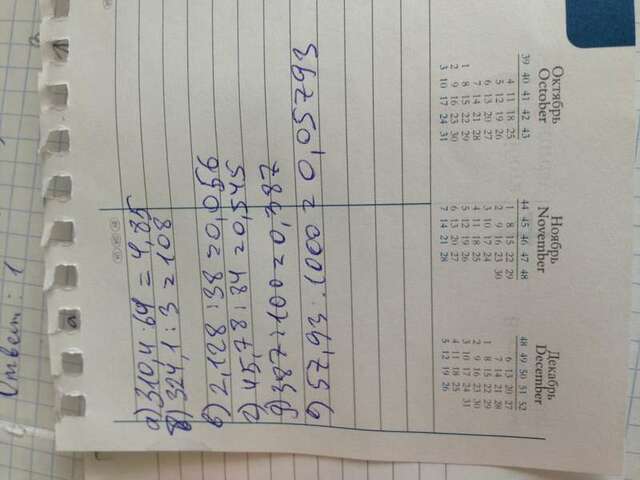 Ответ: 1
а) 310,4 : 64 = 4,85
б) 324,1 : 3 = 108
в) 2,128 : 38 = 0,056
г) 45,78 : 84 = 0,545
д) 387 : 100 = 0,387
е) 57,93 : 1000 = 0,05793
Октябрь
October
39 40 41 42 43
4 11 18 25
5 12 19 26
6 13 20 27
7 14 21 28
1 8 15 22 29
2 9 16 23 30
3 10 17 24 31
Ноябрь
November
44 45 46 47 48
1 8 15 22 29
2 9 16 23 30
3 10 17 24
4 11 18 25
5 12 19 26
6 13 20 27
7 14 21 28
Декабрь
December
48 49 50 51 52
6 13 20 27
7 14 21 28
1 8 15 22 29
2 9 16 23 30
3 10 17 24 31
4 11 18 25
5 12 19 26